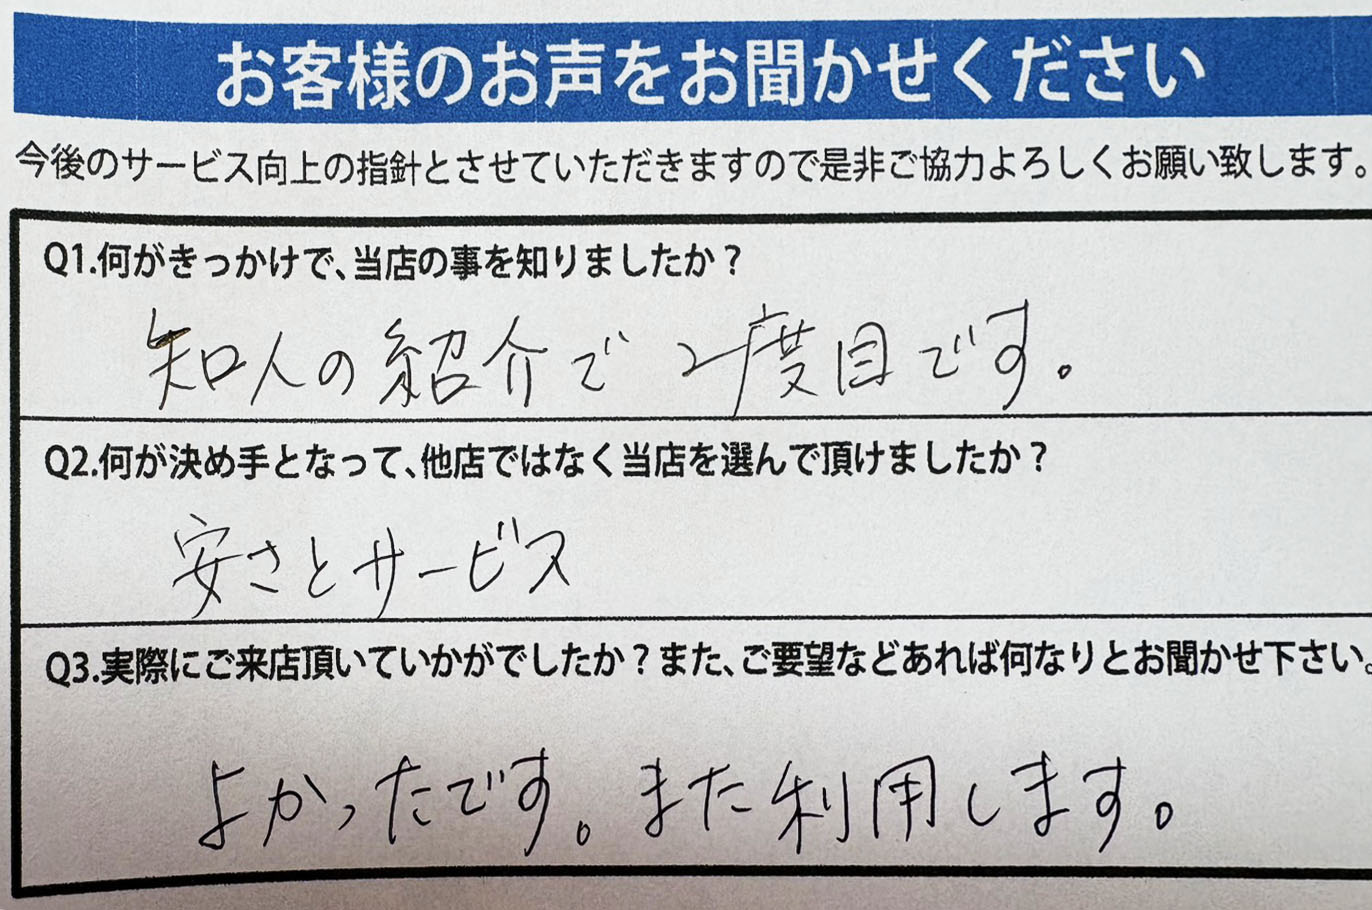 お客様のお声をお聞かせください
今後のサービス向上の指針とさせていただきますので是非ご協力よろしくお願い致します。
Q1.何がきっかけで、当店の事を知りましたか？
知人の紹介で2度目です。
Q2.何が決め手となって、他店ではなく当店を選んで頂けましたか？
安さとサービス
Q3.実際にご来店頂いていかがでしたか？また、ご要望などあれば何なりとお聞かせ下さい。
よかったです。また利用します。